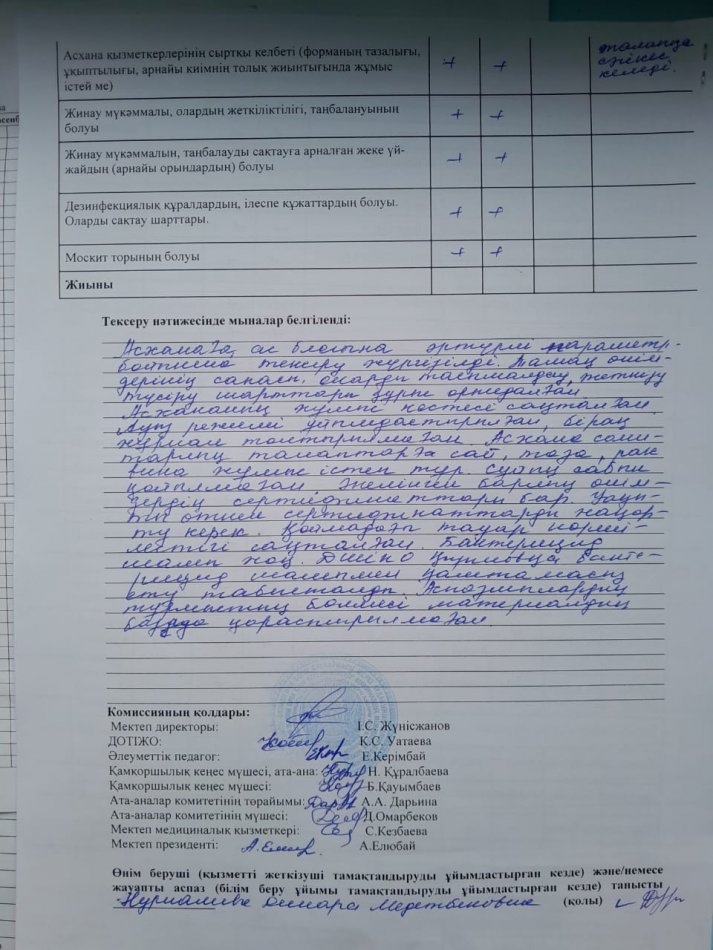 Асхана қызметкерлерінің сыртқы келбеті (форманың тазалығы,
ұқыптылығы, арнайы киімнің толық жиынтығында жұмыс
істей ме)
+ +
талапқа
сәйкес
келеді.
Жинау мүкәммалы, олардың жеткіліктілігі, таңбалануының
болуы
+ +
Жинау мүкәммалын, таңбалауды сақтауға арналған жеке үй-
жайдың (арнайы орындардың) болуы
+ +
Дезинфекциялық құралдардың, ілеспе құжаттардың болуы.
Оларды сақтау шарттары.
+ +
Москит торының болуы
+ +
Жиыны
Тексеру нәтижесінде мыналар белгіленді:
Асханаға, ас блогына әртүрлі параметр-
бойынша тексеру жүргізілді. Тамақ өнім-
дерінің сапасы, оларды тасымалдау, жеткізу
түсіру шарттары дұрыс орындалған.
Асхананың жұмыс кестесі сақталған.
Ауыз режимі ұйымдастырылған, бірақ
журнал толтырылмаған. Асхана сани-
тарлық талаптарға сай, таза,
жұмыс істеп тұр.
қойылмаған. Әкелінген барлық өнім-
дердің сертификаттары бар. Уақы-
ты өткен сертификаттарды жаңар-
ту керек. Қоймадағы тауар
сақталған. Бактерицид
шамы жоқ. ДШІЖО бакте-
рицид шамымен қамтамасыз
ету табысталды. Аспазшылардың
тұрмыстық бөлмесі материалдық
базада қарастырылмаған.
Комиссияның қолдары:
Мектеп директоры: І.С. Жүнісжанов
ДОТІЖО: К.С. Уатаева
Әлеуметтік педагог: Е.Керімбай
Қамқоршылық кеңес мүшесі, ата-ана: Н. Құралбаева
Қамқоршылық кеңес мүшесі: Б.Қауымбаев
Ата-аналар комитетінің төрайымы: А.А. Дарьина
Ата-аналар комитетінің мүшесі: Д.Омарбеков
Мектеп медициналық қызметкері: С.Кезбаева
Мектеп президенті: А.Елюбай
Өнім беруші (қызметті жеткізуші тамақтандыруды ұйымдастырған кезде) және/немесе
жауапты аспаз (білім беру ұйымы тамақтандыруды ұйымдастырған кезде) танысты
Динара Медетбековна (қолы)